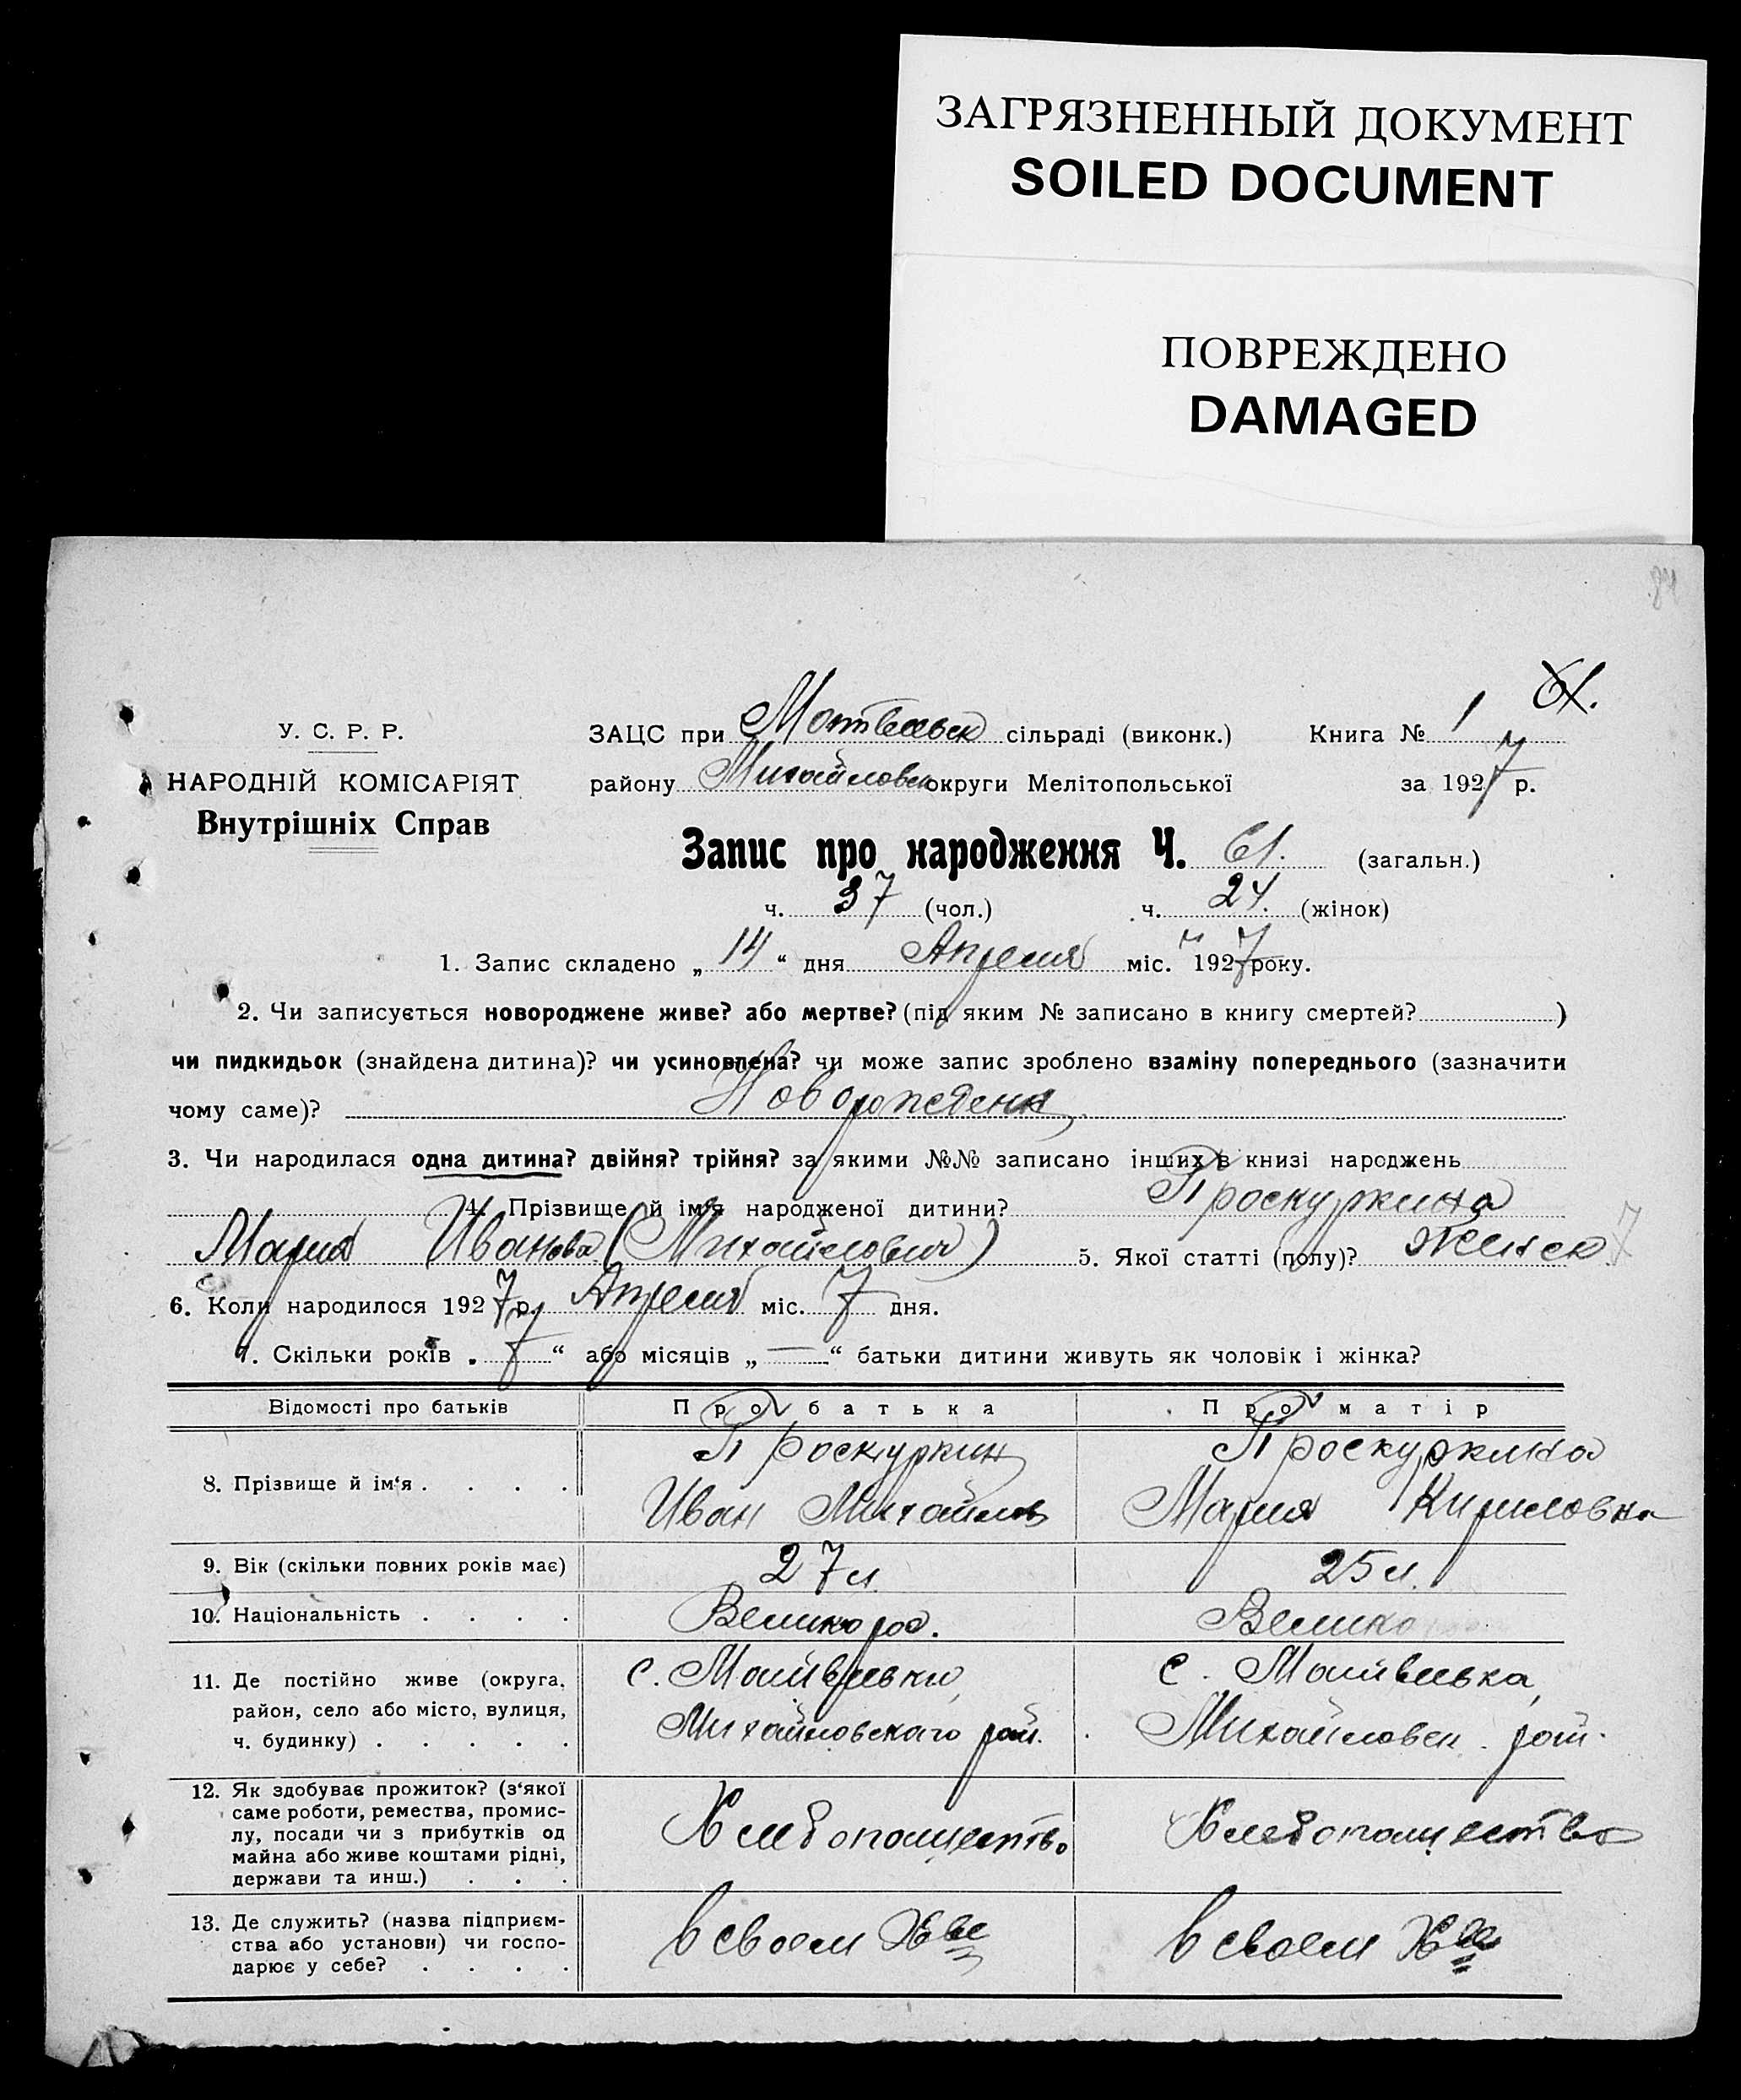 ЗАГРЯЗНЕННЫЙ ДОКУМЕНТ
SOILED DOCUMENT
ПОВРЕЖДЕНО
DAMAGED
84
61.
У. С. Р. Р.
НАРОДНІЙ КОМІСАРІЯТ
Внутрішніх Справ
ЗАЦС при Матвеевск сільраді (виконк.) Книга № 1
району Михайловск округи Мелітопольської за 1927 р.
Запис про народження Ч. 61. (загальн.)
ч. 37 (чол.) ч. 24. (жінок)
1. Запис складено „14“ дня Апреля міс. 1927 року.
2. Чи записується новороджене живе? або мертве? (під яким № записано в книгу смертей? )
чи пидкидьок (знайдена дитина)? чи усиновлена? чи може запис зроблено взаміну попереднього (зазначити
чому саме)? Новорожден
3. Чи народилася одна дитина? двійня? трійня? за якими №№ записано інших в книзі народжень
4. Прізвище й ім'я народженої дитини? Проскуркина
Мария Иванова (Михайлович) 5. Якої статті (полу)? Женск
6. Коли народилося 1927 р. Апреля міс. 7 дня.
7. Скільки років „7“ або місяців „—“ батьки дитини живуть як чоловік і жінка?
Відомості про батьків Про батька Про матір
8. Прізвище й ім'я . . . . Проскуркин Проскуркина
Иван Михайлов Мария Кириловна
9. Вік (скільки повних років має) 27 л. 25 л.
10. Національність . . . . Великорос. Велико
11. Де постійно живе (округа, с. Матвеевки, с. Матвеевка,
район, село або місто, вулиця, Михайловскаго рай. Михайловск. рай.
ч. будинку) . . . . .
12. Як здобуває прожиток? (з'якої
саме роботи, ремества, промис-
лу, посади чи з прибутків од Хлебопашество Хлебопашество
майна або живе коштами рідні,
держави та инш.) . . .
13. Де служить? (назва підприєм-
ства або установи) чи госпо- в своем Хве в своем Хве
дарює у себе? . . . .